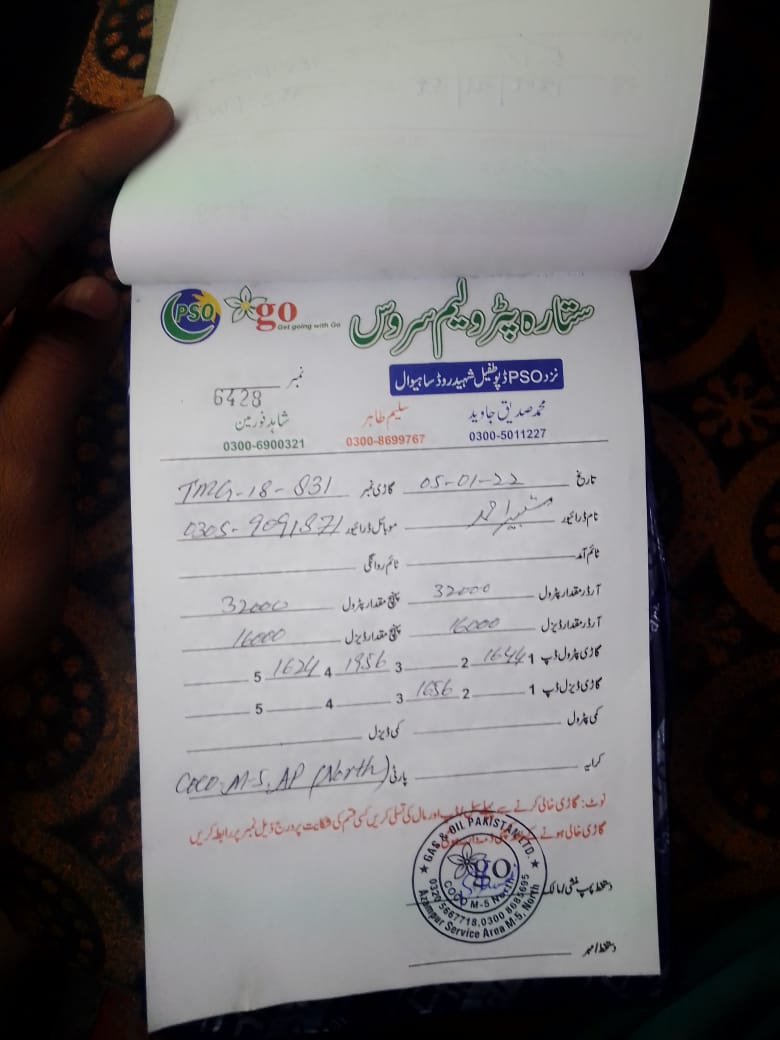 PSO go Get going with Go ستارہ پٹرولیم سروس
نزد PSO ڈپو طفیل شہید روڈ ساہیوال
نمبر 6428
محمد صدیق جاوید سلیم طاہر شاہد فورمین
0300-5011227 0300-8699767 0300-6900321
تاریخ 05-01-22 گاڑی نمبر TMG-18-831
نام ڈرائیور شبیر احمد موبائل ڈرائیور 0305-9091871
ٹائم آمد ٹائم روانگی
آرڈر مقدار پٹرول 32000 پہنچ مقدار پٹرول 32000
آرڈر مقدار ڈیزل 16000 پہنچ مقدار ڈیزل 16000
گاڑی پٹرول ڈپ 1 1644 2 3 1956 4 1624 5
گاڑی ڈیزل ڈپ 1 2 1656 3 4 5
کمی پٹرول کمی ڈیزل
کرایہ پارٹی COCO M-5, AP (North)
نوٹ: گاڑی خالی کرنے سے پہلے اور مال کی تسلی کریں کسی قسم کی شکایت پر درج ذیل نمبر پر رابطہ کریں
گاڑی خالی ہونے کے
GAS & OIL PAKISTAN LTD.
go
COCO M-5 North
0320 5667718, 0300 8685695
Azampur Service Area M-5, North
دستخط پمپ منشی / مالک
دستخط / مہر